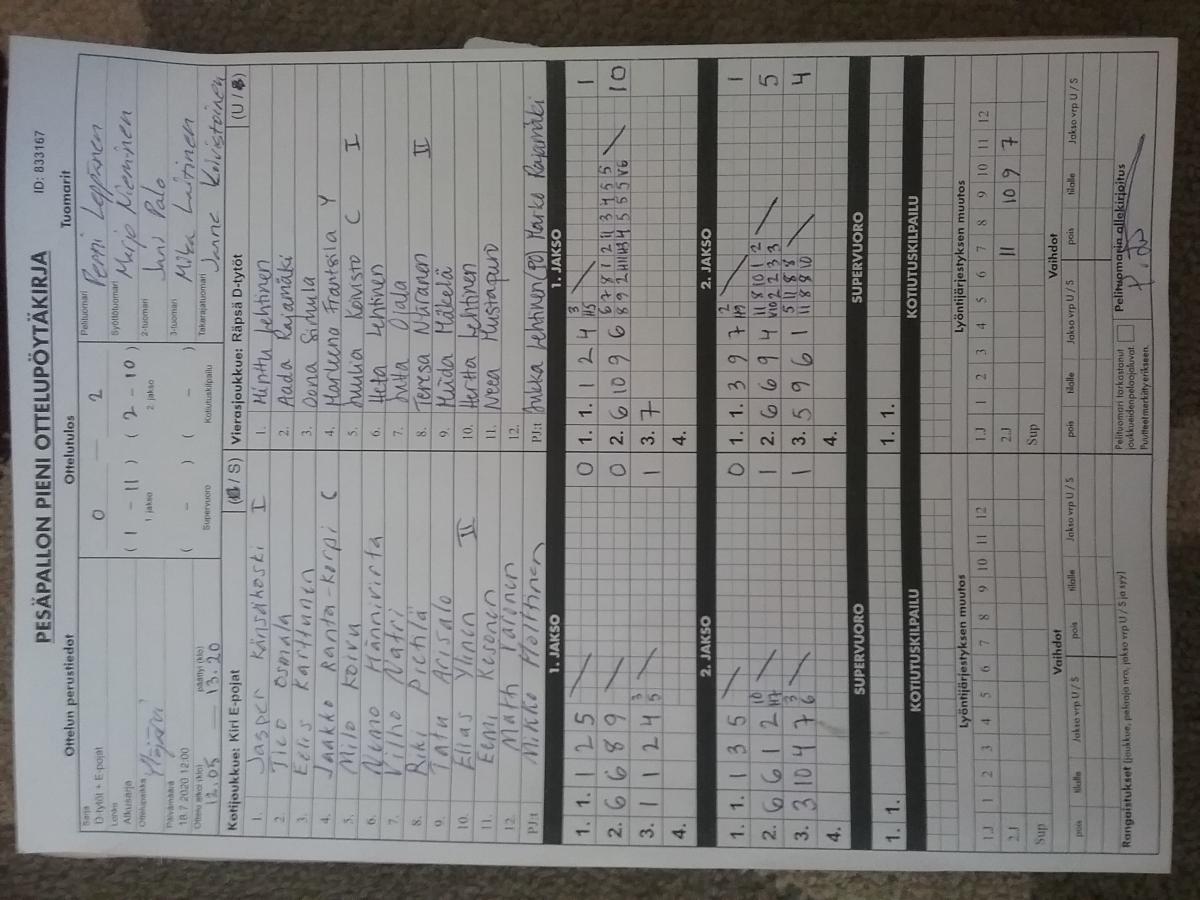 PESÄPALLON PIENI OTTELUPÖYTÄKIRJA
ID: 833167
Ottelun perustiedot
Ottelutulos
Tuomarit
Sarja
D-tytöt + E-pojat
Lohko
Alkusarja
Ottelupaikka
Päivämäärä
18.7.2020 12:00
Ottelu alkoi (klo)
12.05
päättyi (klo)
13.20
0 — 2
( 1 - 11 ) ( 2 - 10 )
1. jakso 2. jakso
( - ) ( - )
Supervuoro Kotiutuskilpailu
Pelituomari
Petri Leppänen
Syöttötuomari
Mirjo Nieminen
2-tuomari
Jani Palo
3-tuomari
Mika Laitinen
Takarajatuomari
Janne Koivistoinen
Kotijoukkue: Kiri E-pojat
/ S)
1. Jasper Känsäkoski I
2. Tico Osmala
3. Eelis Karttunen
4. Jaakko Ranta-Korpi C
5. Milo Koivu
6. Nemo Männivirta
7. Vilho Natri
8. Riki Pietilä
9. Tatu Arisalo
10. Elias Ylinen II
11. Eemi Kesonen
12. Matti Varonen
PJ:t Mikko Molttinen
Vierasjoukkue: Räpsä D-tytöt
(U /
1. Minttu Lehtinen
2. Aada Rajamäki
3. Oona Sirkula
4. Marleena Frantsila Y
5. Juulia Koivisto C I
6. Heta Lehtinen
7. Jutta Ojala
8. Teresa Niiranen II
9. Miida Mäkelä
10. Hertta Lehtinen
11. Neea Mustapuro
12.
PJ:t Jukka Lehtinen Marko Rajamäki
1. JAKSO
1. JAKSO
1. 1. 1 2 5 0
2. 6 6 8 9 0
3. 1 1 2 4 3 5 1
4.
1. 1. 1 2 4 3 H5 1
2. 6 10 9 6 10
3. 7
4.
2. JAKSO
2. JAKSO
1. 1. 1 3 5 0
2. 6 6 1 2 10 1
3. 3 10 4 7 3 6 1
4.
1. 1. 3 9 7 2 1
2. 6 6 9 4 11 8 10 1 2 5
3. 5 9 6 1 5 11 8 8 11 8 9 10 4
4.
SUPERVUORO
SUPERVUORO
1. 1.
1. 1.
KOTIUTUSKILPAILU
KOTIUTUSKILPAILU
Lyöntijärjestyksen muutos
Lyöntijärjestyksen muutos
1.J 1 2 3 4 5 6 7 8 9 10 11 12
2.J
Sup
1.J 1 2 3 4 5 6 7 8 9 10 11 12
2.J 11 10 9 7
Sup
Vaihdot
Vaihdot
pois tilalle Jakso vrp U / S pois tilalle Jakso vrp U / S
pois tilalle Jakso vrp U / S pois tilalle Jakso vrp U / S
Rangaistukset (joukkue, pelaaja nro, jakso vrp U / S ja syy)
Pelituomari tarkastanut
joukkueiden pelaajaluvat.
Puutteet merkitty erikseen.
Pelituomarin allekirjoitus